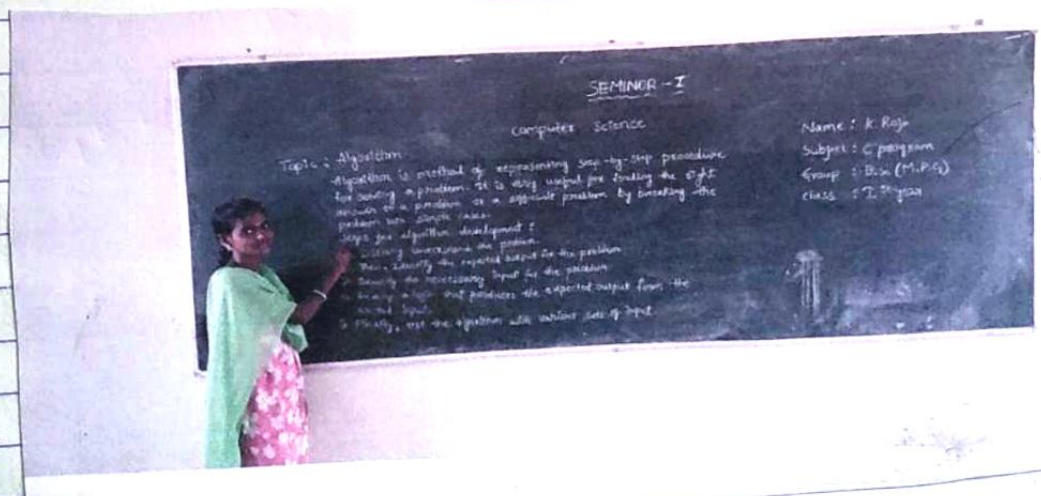 SEMINOR - I
Computer Science
Name : K. Roja
Subject : C program
Group : B.Sc (M.P.Cs)
class : I st year
Topic : Algorithm
Algorithm is method of representing step-by-step procedure
for solving a problem. It is very useful for finding the right
answer to a problem or a difficult problem by breaking the
problem into simple cases.
Steps for algorithm development :
understand the problem
Then, identify the expected output for the problem
Identify the necessary input for the problem
logic that produces the expected output from the
input.
5 Finally, test the algorithm with various sets of input